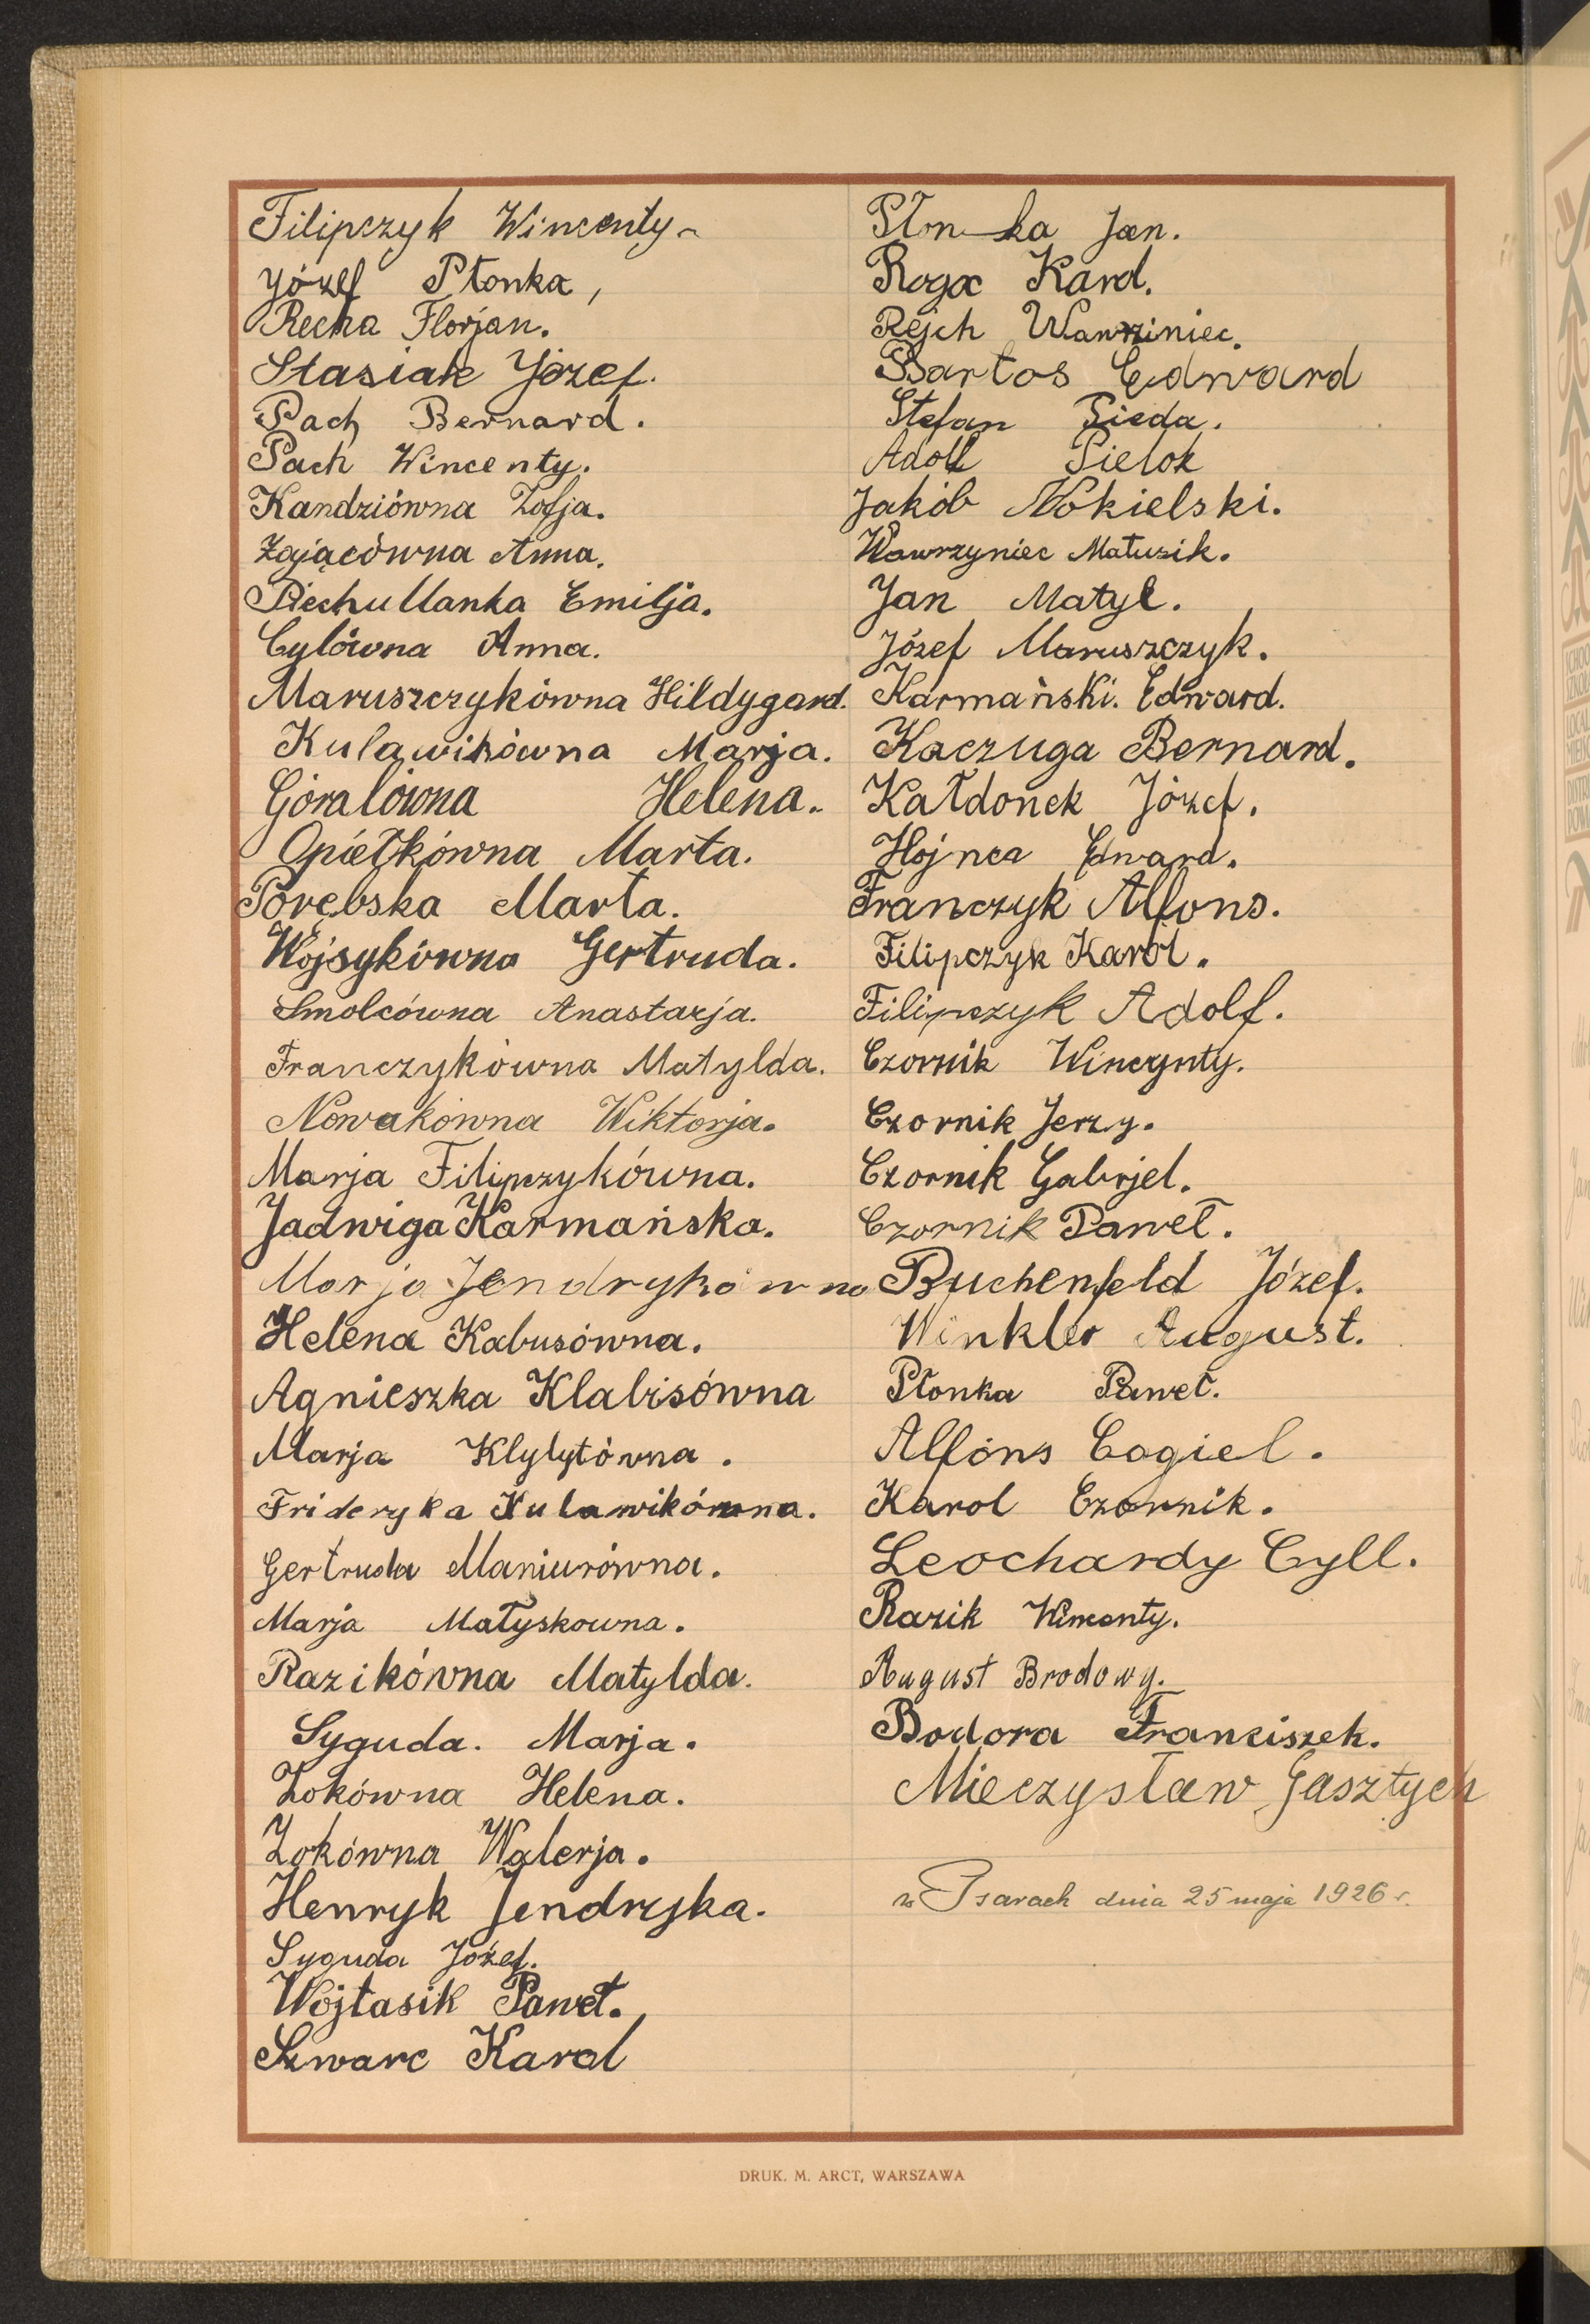 Filipczyk Wincenty
Józef Płonka,
Recka Florjan.
Stasiak Józef.
Pach Bernard.
Pach Wincenty.
Kandziówna Zofja.
Zającówna Anna.
Piechullanka Emilja.
Cylówna Anna.
Maruszczykówna Hildygard.
Kulawikówna Marja.
Góralówna Helena.
Opiełkówna Marta.
Porębska Marta.
Wojsykówna Gertruda.
Smolcówna Anastazja.
Franczykówna Matylda.
Nowakówna Wiktorja.
Marja Filipczykówna.
Jadwiga Karmańska.
Marja Jendrykówna
Helena Kabusówna.
Agnieszka Klabisówna
Marja Klylytówna.
Frideryka Kulawikówna.
Gertruda Maniurówna.
Marja Małyskowna.
Razikówna Matylda.
Syguda. Marja.
Zokówna Helena.
Zokówna Walerja.
Henryk Jendryka.
Syguda Józef.
Wojtasik Paweł.
Szwarc Karol
Płonka Jan.
Roga Karol.
Rejch Wawrziniec.
Bartos Edward
Stefan Pieda.
Adolf Pielok
Jakób Nokielski.
Wawrzyniec Matusik.
Jan Matyl.
Józef Maruszczyk.
Karmański. Edward.
Kaczuga Bernard.
Kałdonek Józef.
Hojnca Edward.
Franczyk Alfons.
Filipczyk Karol.
Filipczyk Adolf.
Czornik Wincynty.
Czornik Jerzy.
Czornik Gabrjel.
Czornik Paweł.
Buchenfeld Józef.
Winkler August.
Płonka Paweł.
Alfons Cogiel.
Karol Czornik.
Leochardy Cyll.
Razik Wincenty.
August Brodowy.
Bodora Franciszek.
Mieczysław Gasztych
w Psarach dnia 25 maja 1926 r.
DRUK. M. ARCT, WARSZAWA